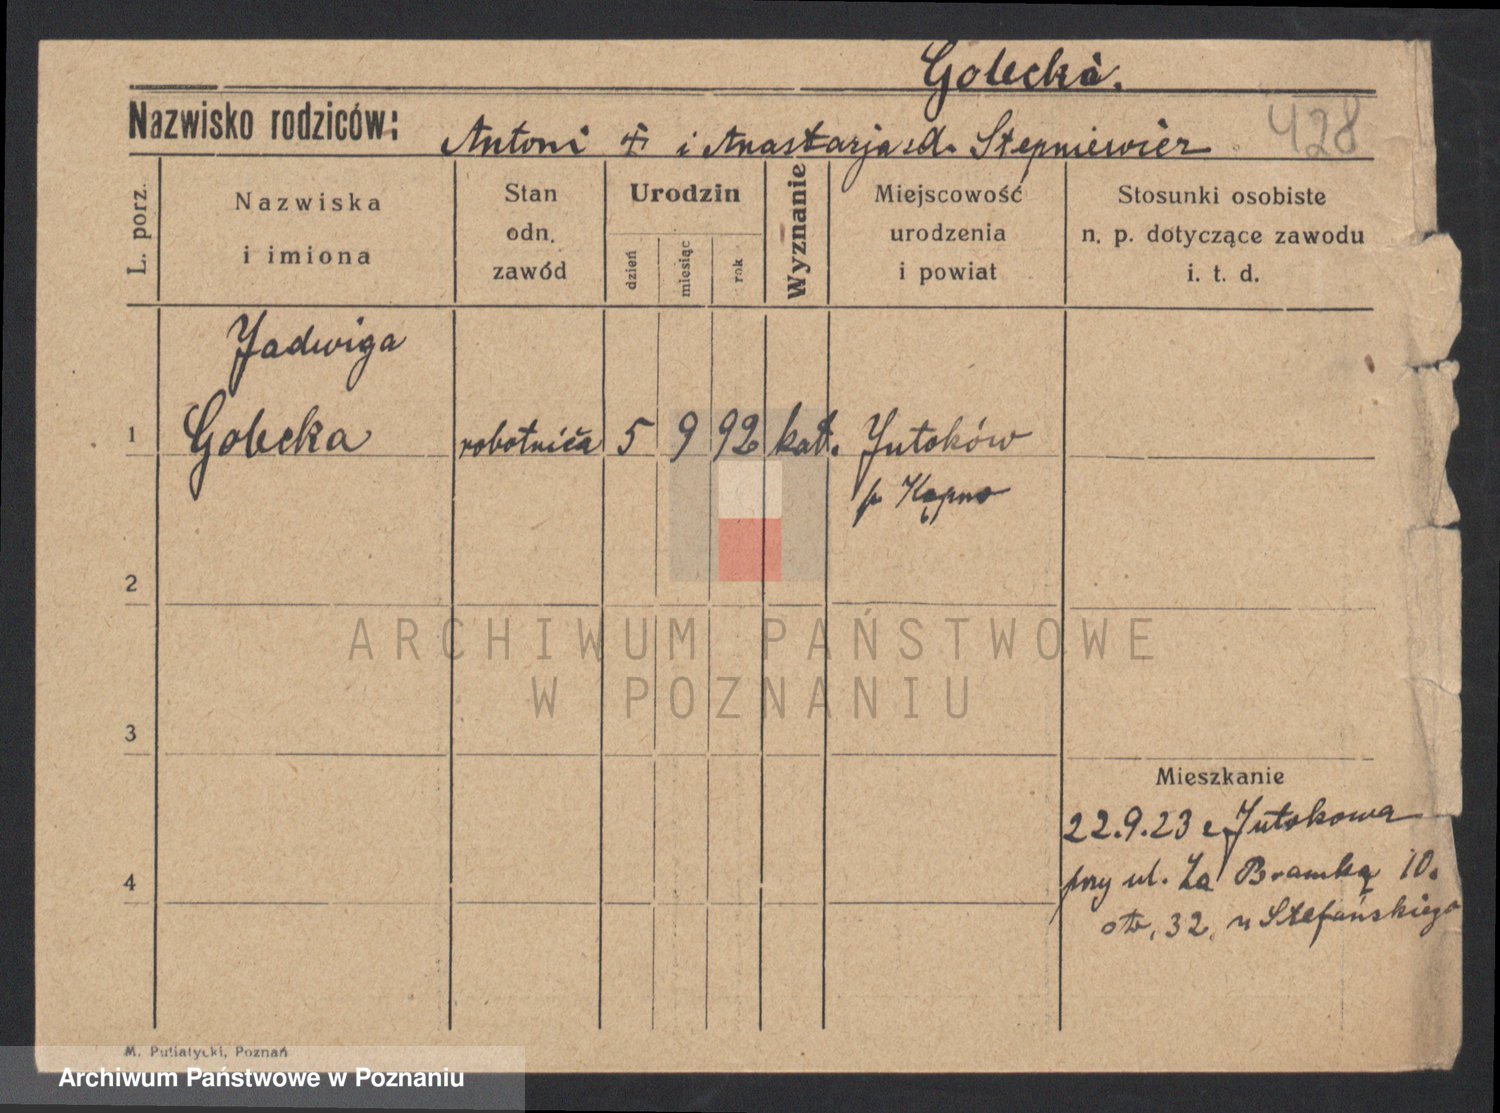 Golecka.
428
Nazwisko rodziców:
Antoni i Anastazja zd. Stępniewicz
L. porz.
Nazwiska
i imiona
Stan
odn.
zawód
Urodzin
dzień
miesiąc
rok
Wyznanie
Miejscowość
urodzenia
i powiat
Stosunki osobiste
n. p. dotyczące zawodu
i. t. d.
Jadwiga
1 Golecka robotnica 5 9 92 kat. Jutoków
p Kępno
2
ARCHIWUM PAŃSTWOWE
W POZNANIU
3
Mieszkanie
22.9.23 z Jutokowa
4
przy ul. Za Bramką 10.
32, u Stefańskiego
M. Putiatycki, Poznań
Archiwum Państwowe w Poznaniu